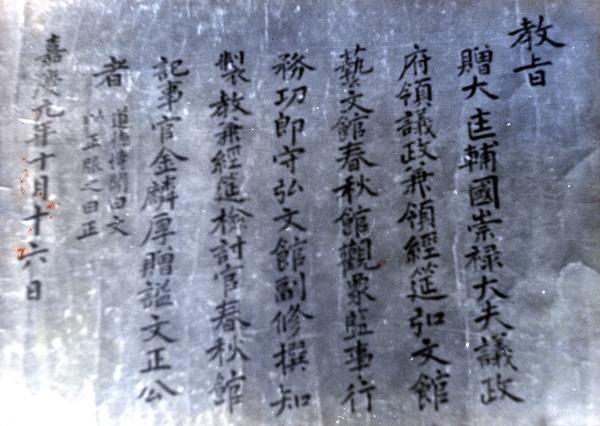 教旨
贈大匡輔國崇祿大夫議政
府領議政兼領經筵弘文館
藝文館春秋館觀象監事行
務功郎守弘文館副修撰知
製教兼經筵檢討官春秋館
記事官金麟厚贈諡文正公
者
道德博聞曰文
以正服之曰正
嘉慶元年十月十六日